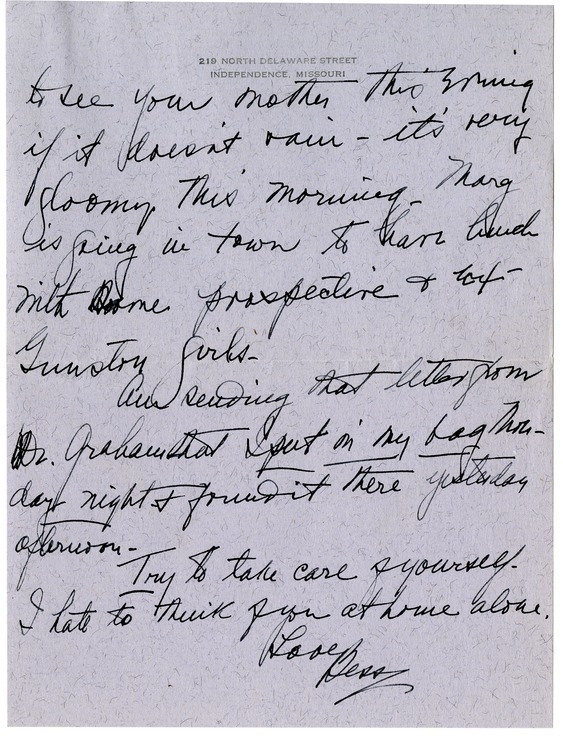 219 NORTH DELAWARE STREET
INDEPENDENCE, MISSOURI
to see your mother this evening
if it doesn't rain - it's very
gloomy this morning. Marg
is going in town to have lunch
with some prospective & ex-
Gunston girls-
Am sending that letter from
Dr. Graham that I put in my bag Mon-
day night & found it there yesterday
afternoon-
Try to take care of yourself.
I hate to think of you at home alone.
Love,
Bess